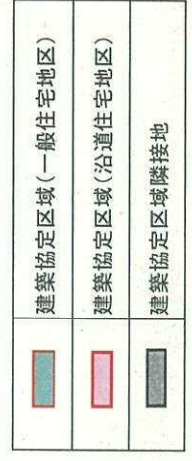 建築協定区域(一般住宅地区)
建築協定区域(沿道住宅地区)
建築協定区域隣接地